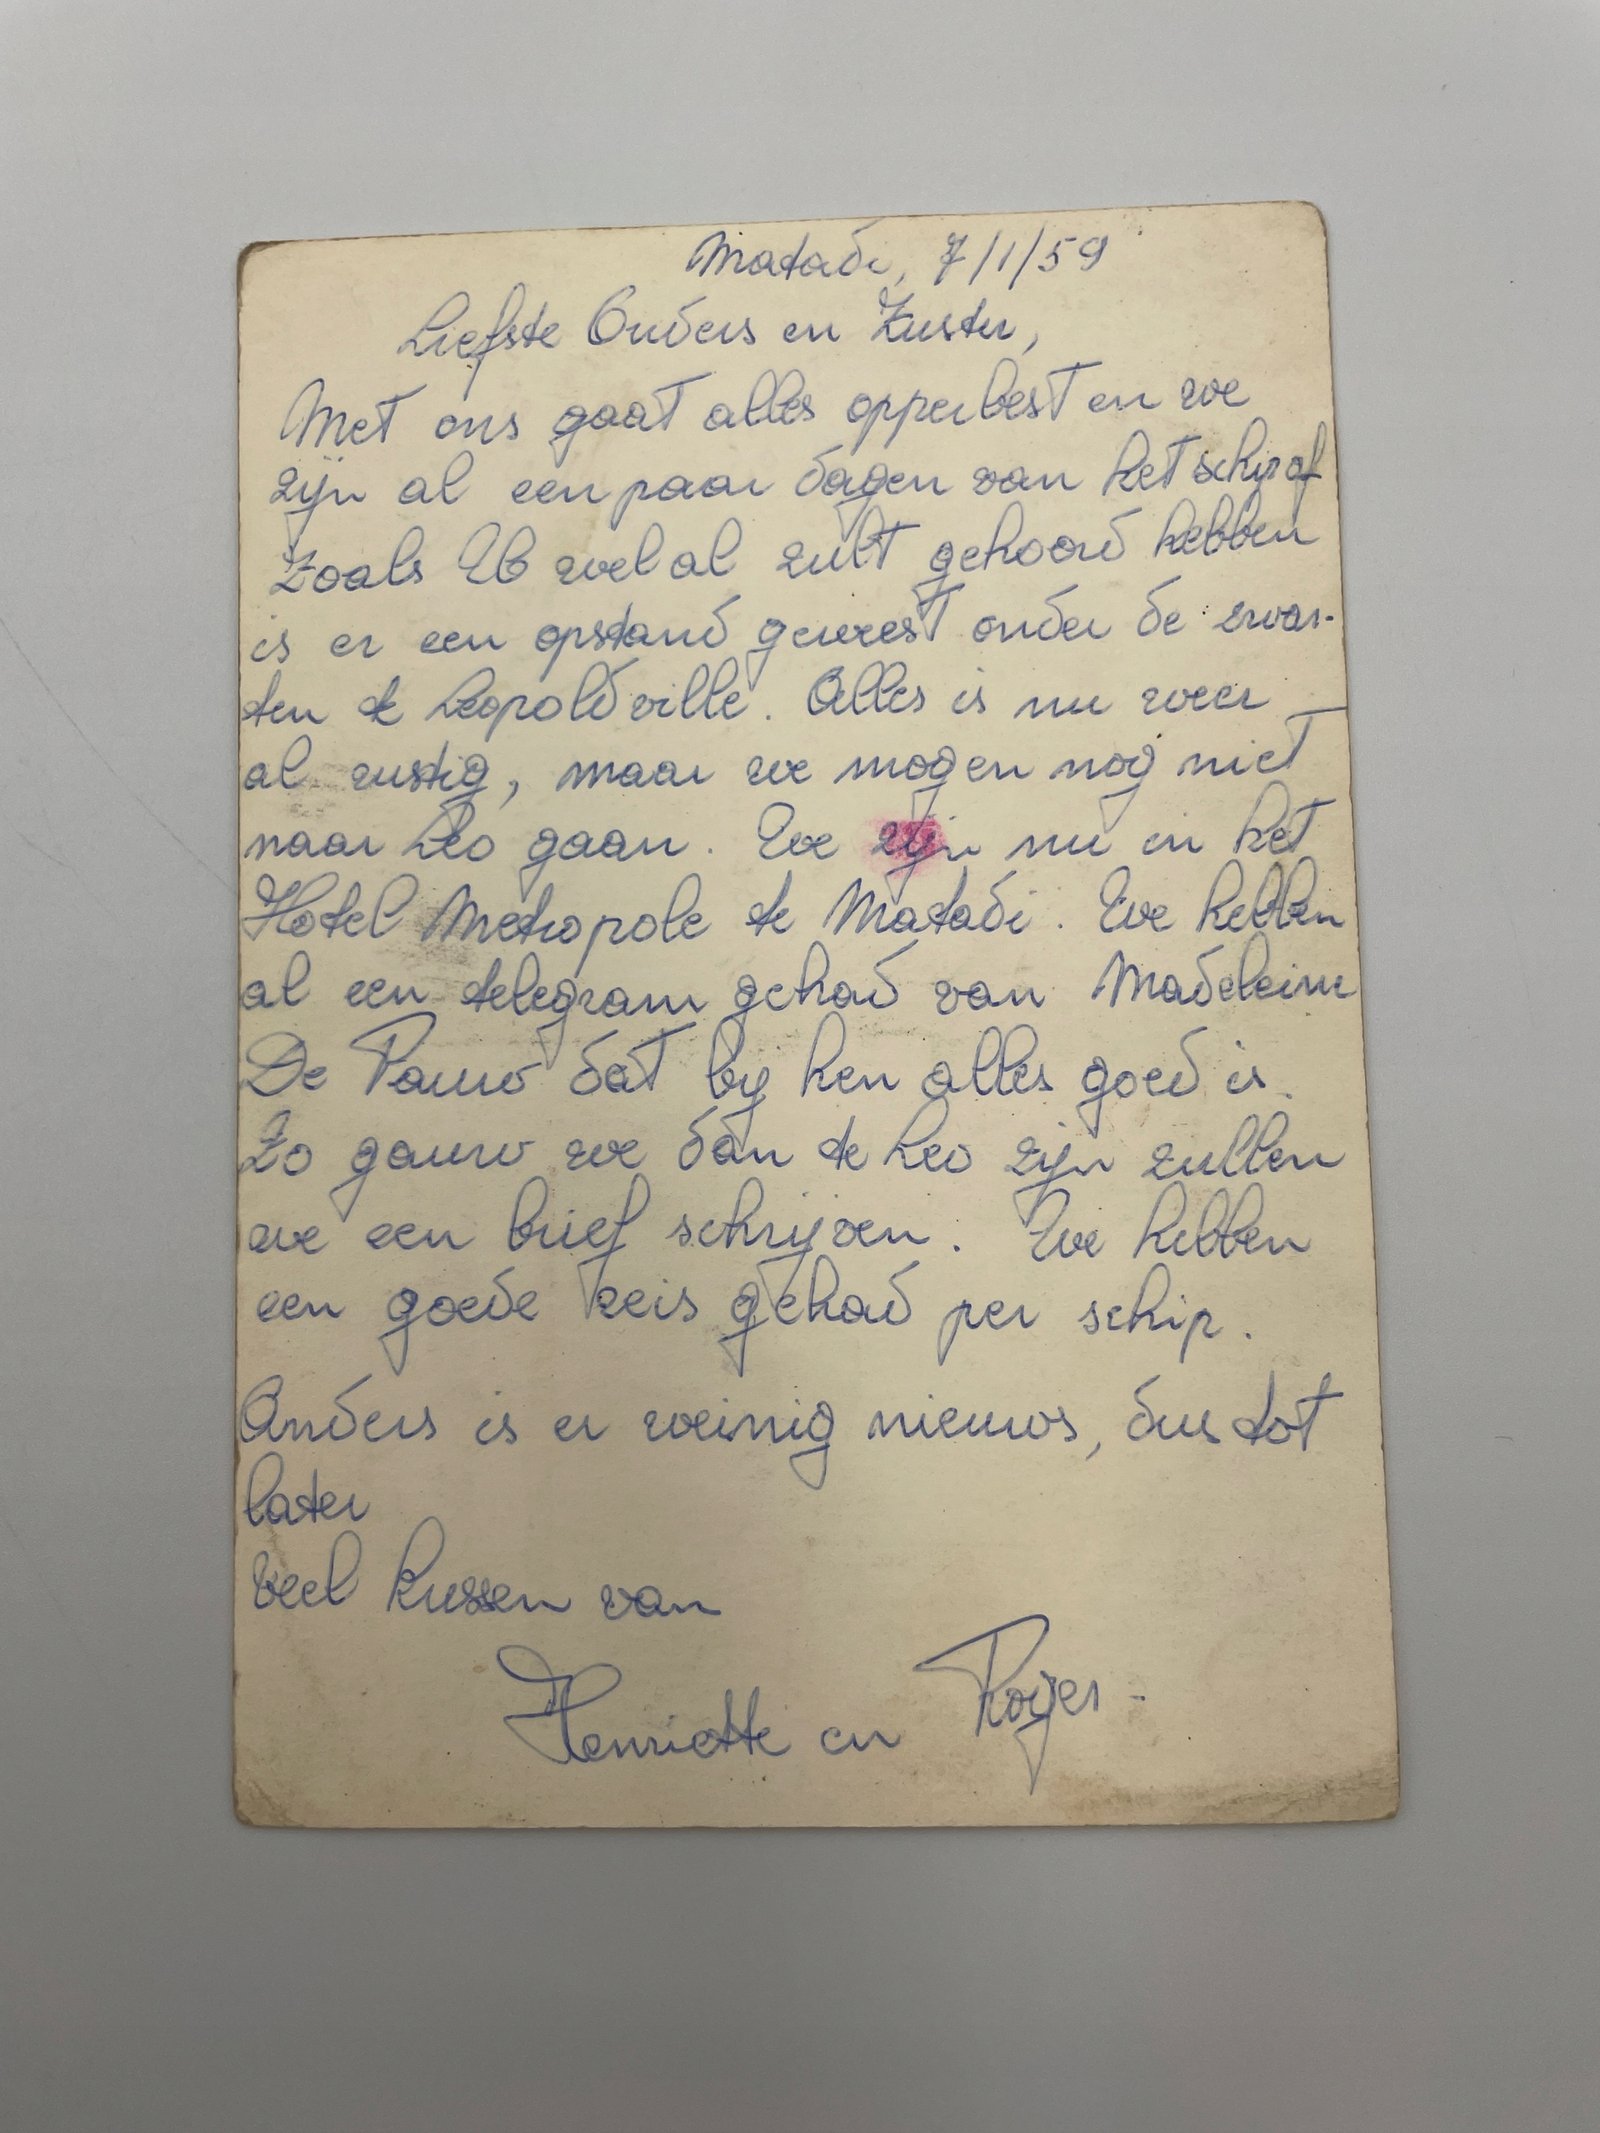 Matadi, 7/1/59
Liefste Ouders en Zuster,
Met ons gaat alles opperbest en we
zijn al een paar dagen van het schip af
Zoals U wel al zult gehoord hebben
is er een opstand geweest onder de zwar-
ten te Leopoldville. Alles is nu weer
al rustig, maar we mogen nog niet
naar Leo gaan. We zijn nu in het
Hotel Metropole te Matadi. We hebben
al een telegram gehad van Madeleine
De Pauw dat by hen alles goed is.
Zo gauw we dan te Leo zijn zullen
we een brief schrijven. We hebben
een goede reis gehad per schip.
Anders is er weinig nieuws, dus tot
later
Veel kussen van
Henriette en Roger-